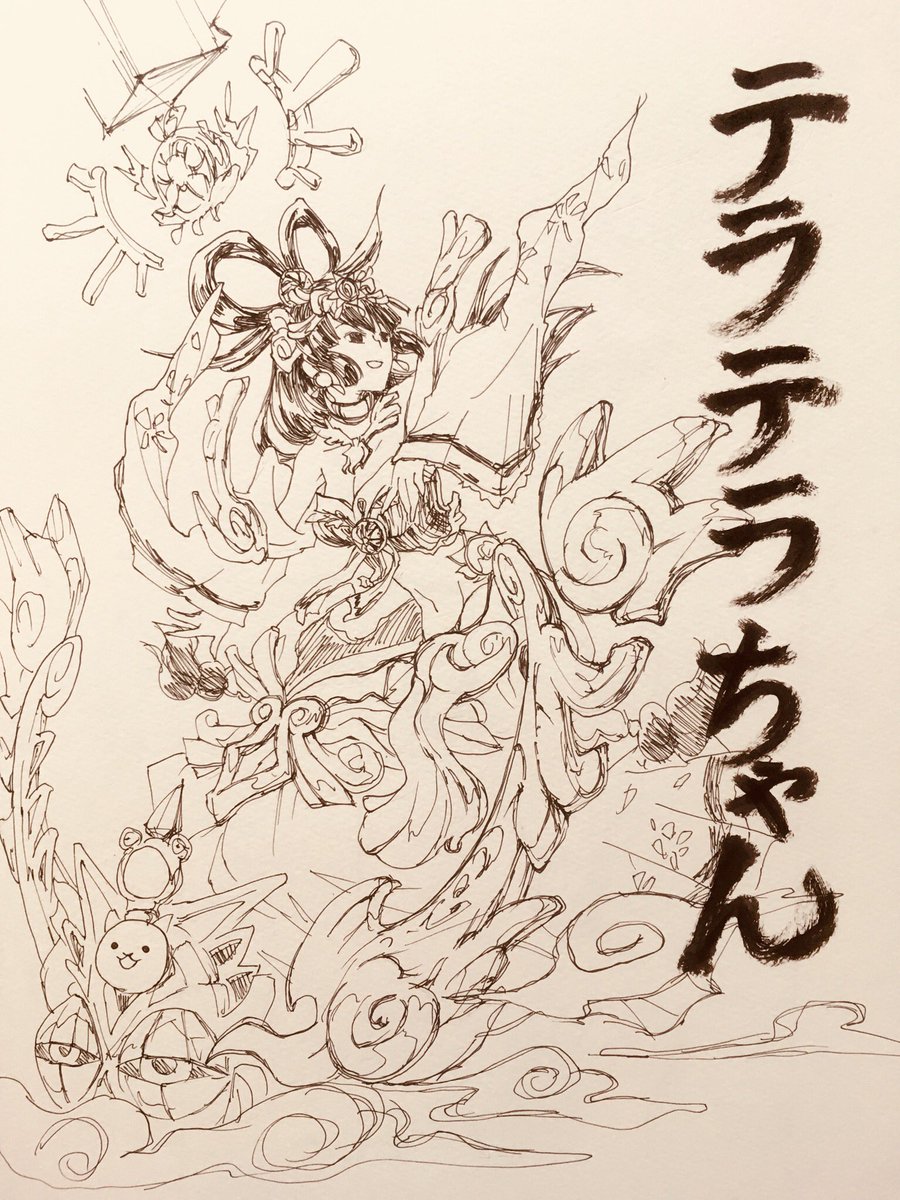 テラテラちゃん